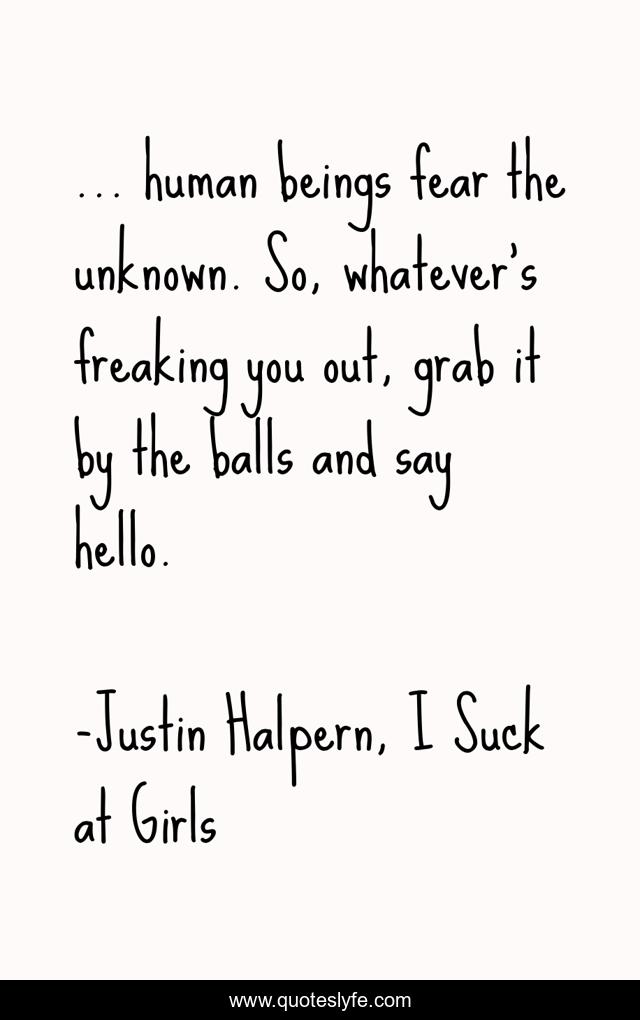 ... human beings fear the
unknown. So, whatever's
freaking you out, grab it
by the balls and say
hello.
-Justin Halpern, I Suck
at Girls
www.quoteslyfe.com